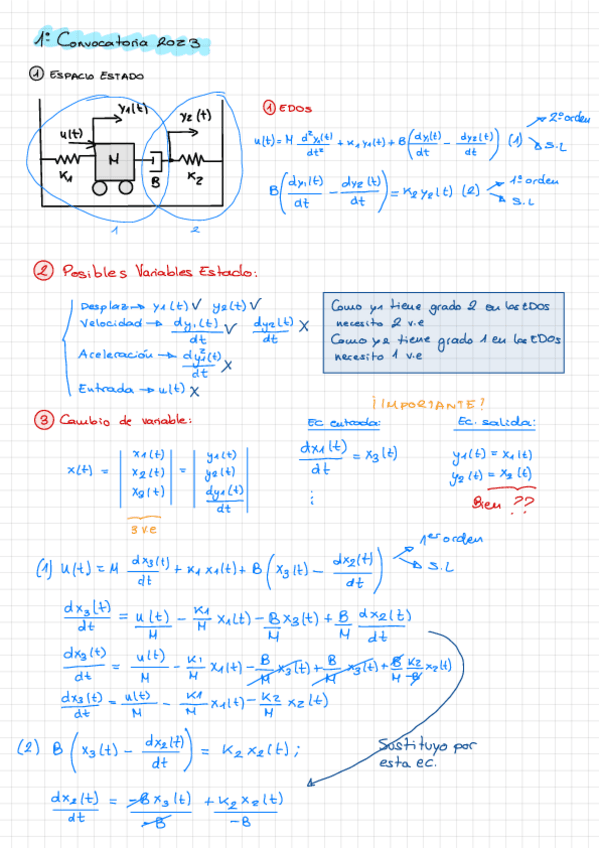 1ª Convocatoria 2023
① ESPACIO ESTADO
y1(t)
y2(t)
u(t)
M
K1
B
K2
1
2
① EDOS
u(t) = M d²y1(t)/dt² + K1 y1(t) + B(dy1(t)/dt - dy2(t)/dt) (1)
2º orden
S.L
B(dy1(t)/dt - dy2(t)/dt) = K2 y2(t) (2)
1º orden
S.L
② Posibles Variables Estado:
Desplaz → y1(t) ✓ y2(t) ✓
Velocidad → dy1(t)/dt ✓ dy2(t)/dt X
Aceleración → dy1²(t)/dt X
Entrada → u(t) X
Como y1 tiene grado 2 en las EDOS
necesito 2 v.e
Como y2 tiene grado 1 en las EDOS
necesito 1 v.e
③ Cambio de variable:
x(t) = | x1(t) x2(t) x3(t) | = | y1(t) y2(t) dy1(t)/dt |
3 v e
¡IMPORTANTE!
Ec entrada:
dx1(t)/dt = x3(t)
⋮
Ec. salida:
y1(t) = x1(t)
y2(t) = x2(t)
Bien ??
(1) u(t) = M dx3(t)/dt + K1 x1(t) + B(x3(t) - dx2(t)/dt)
1er orden
S.L
dx3(t)/dt = u(t)/M - K1/M x1(t) - B/M x3(t) + B/M dx2(t)/dt
dx3(t)/dt = u(t)/M - K1/M x1(t) - B/M x3(t) + B/M x3(t) + B/M K2/-B x2(t)
dx3(t)/dt = u(t)/M - K1/M x1(t) - K2/M x2(t)
(2) B(x3(t) - dx2(t)/dt) = K2 x2(t);
Sustituyo por
esta ec.
dx2(t)/dt = -B x3(t)/-B + K2 x2(t)/-B